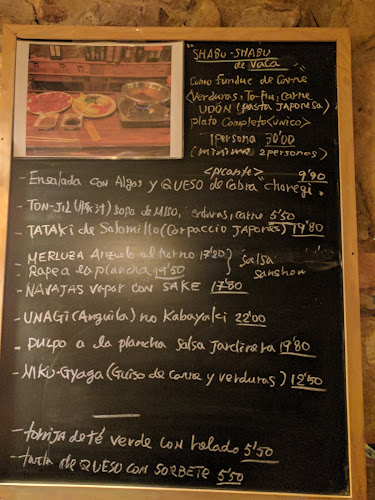 "SHABU-SHABU
de VaCa"
como fundue de Carne
(Verduras, To-Fu, Carne
UDON (pasta JAPONESA)
plato Completo <unico>
1persona 30'00
(minimo 2personas)
<picante>
- Ensalada con Algas y QUESO de Cabra "choregi" 9'90
- TON-JiL (豚汁) Sopa de MISO, verduras, carne 5'50
- TATAKi de Solomillo (Carpaccio JAPONES) 19'80
- MERLUZA Anzuelo al horno 17'20
Rape a la plancha 19'50 } Salsa
sanshou
- NAVAJAS vapor con SAKE 17'80
- UNAGi (Anguila) no Kabayaki 22'00
- PULPO a la plancha Salsa Jardinera 19'80
- NiKU-Gyaga (Guiso de Carne y verduras) 12'50
- torrija de té verde con helado 5'50
- tarta de QUESO CON SORBETE 5'50